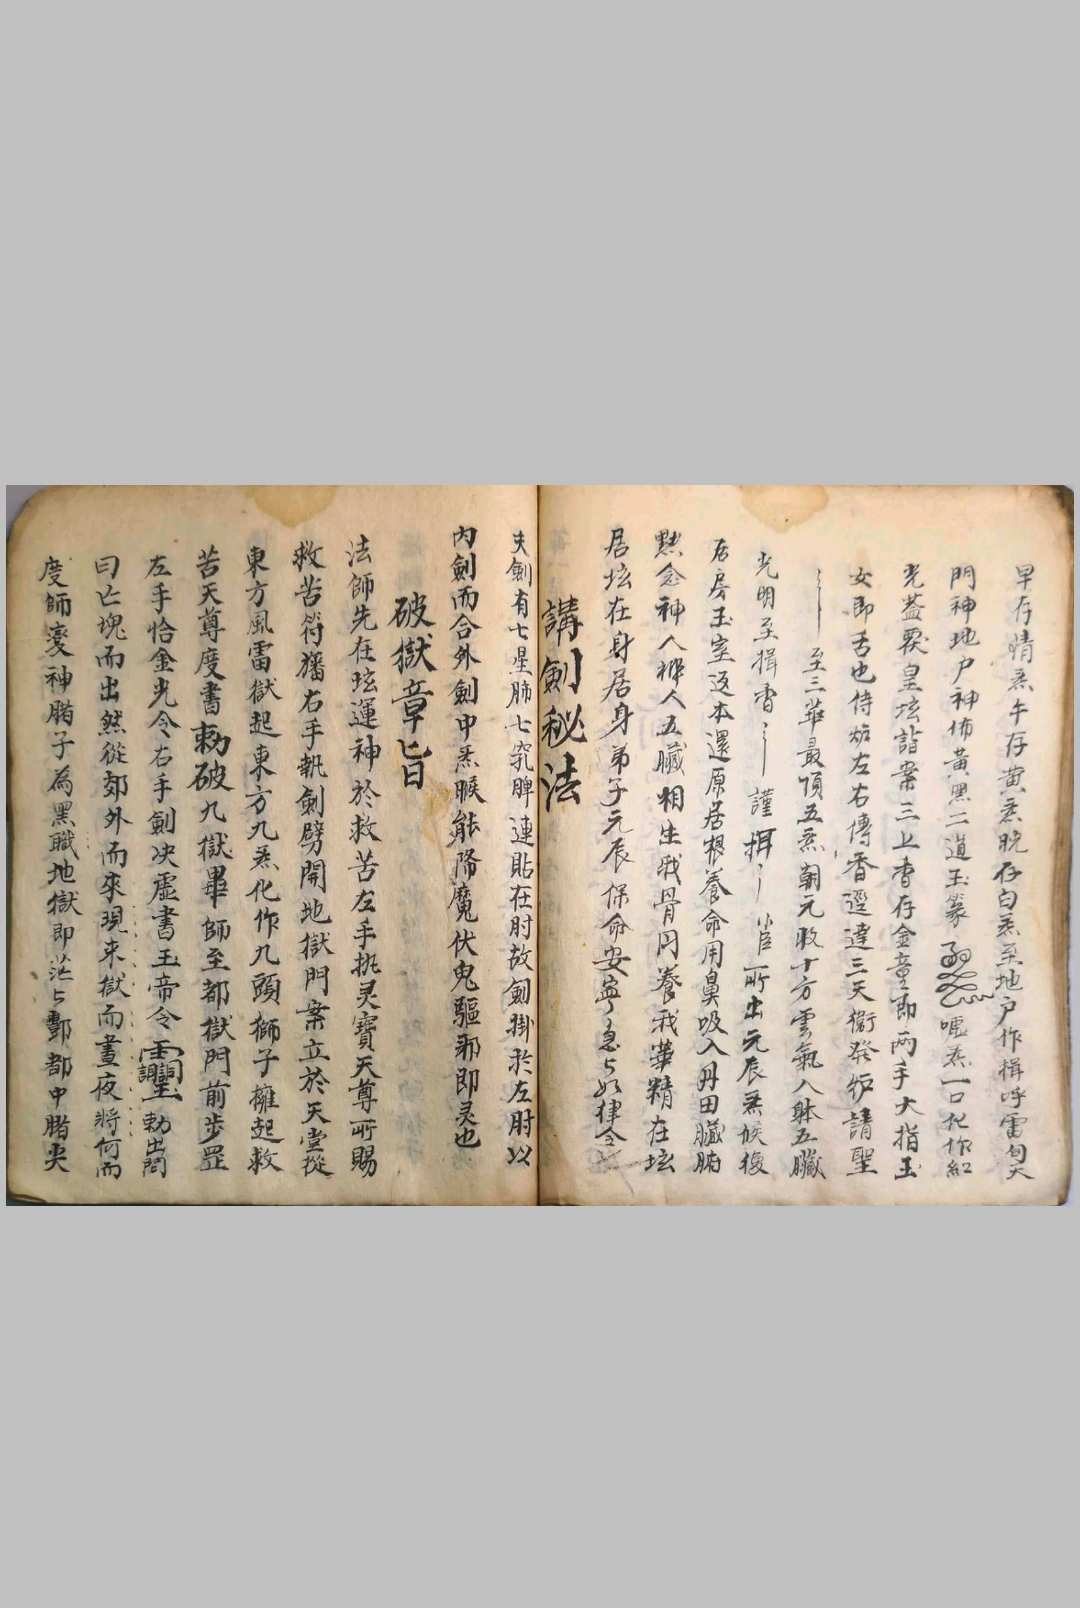 早存情炁午存黄炁晚存白炁至地户作揖呼雷旬天
門神地户神佈黄黑二道玉篆 嘿炁一口化作紅
光蓋覆皇坛詣案三上香存金童即两手大指玉
女即舌也侍炉左右傳香逕達三天衞發炉請聖
至三華最頂五炁朝元收十方雲氣入躰五臟
光明至揖香 謹揖 所出元辰炁候復
居房玉室返本還原居根養命用鼻吸入丹田臟腑
黙念神人 人五臟相生我骨同養我華精在坛
居坛在身居身弟子元辰保命安寧急々如律令
講劍秘法
夫劍有七星肺七竅脾連貼在肘故劍掛於左肘以
内劍而合外劍中炁喉能降魔伏鬼驅邪即灵也
破獄章旨
法師先在坛運神於救苦左手执灵寳天尊所賜
救苦符旛右手執劍劈開地獄門案立於天堂從
東方風雷獄起東方九炁化作九頭獅子擁起救
苦天尊度書勅破九獄畢師至都獄門前步罡
左手恰金光令右手劍决虛書玉帝令 勅出問
曰亡魂而出然從郊外而來現来獄而晝夜將何而
度師変神腊子為黑職地獄即茫々酆都中腊尖